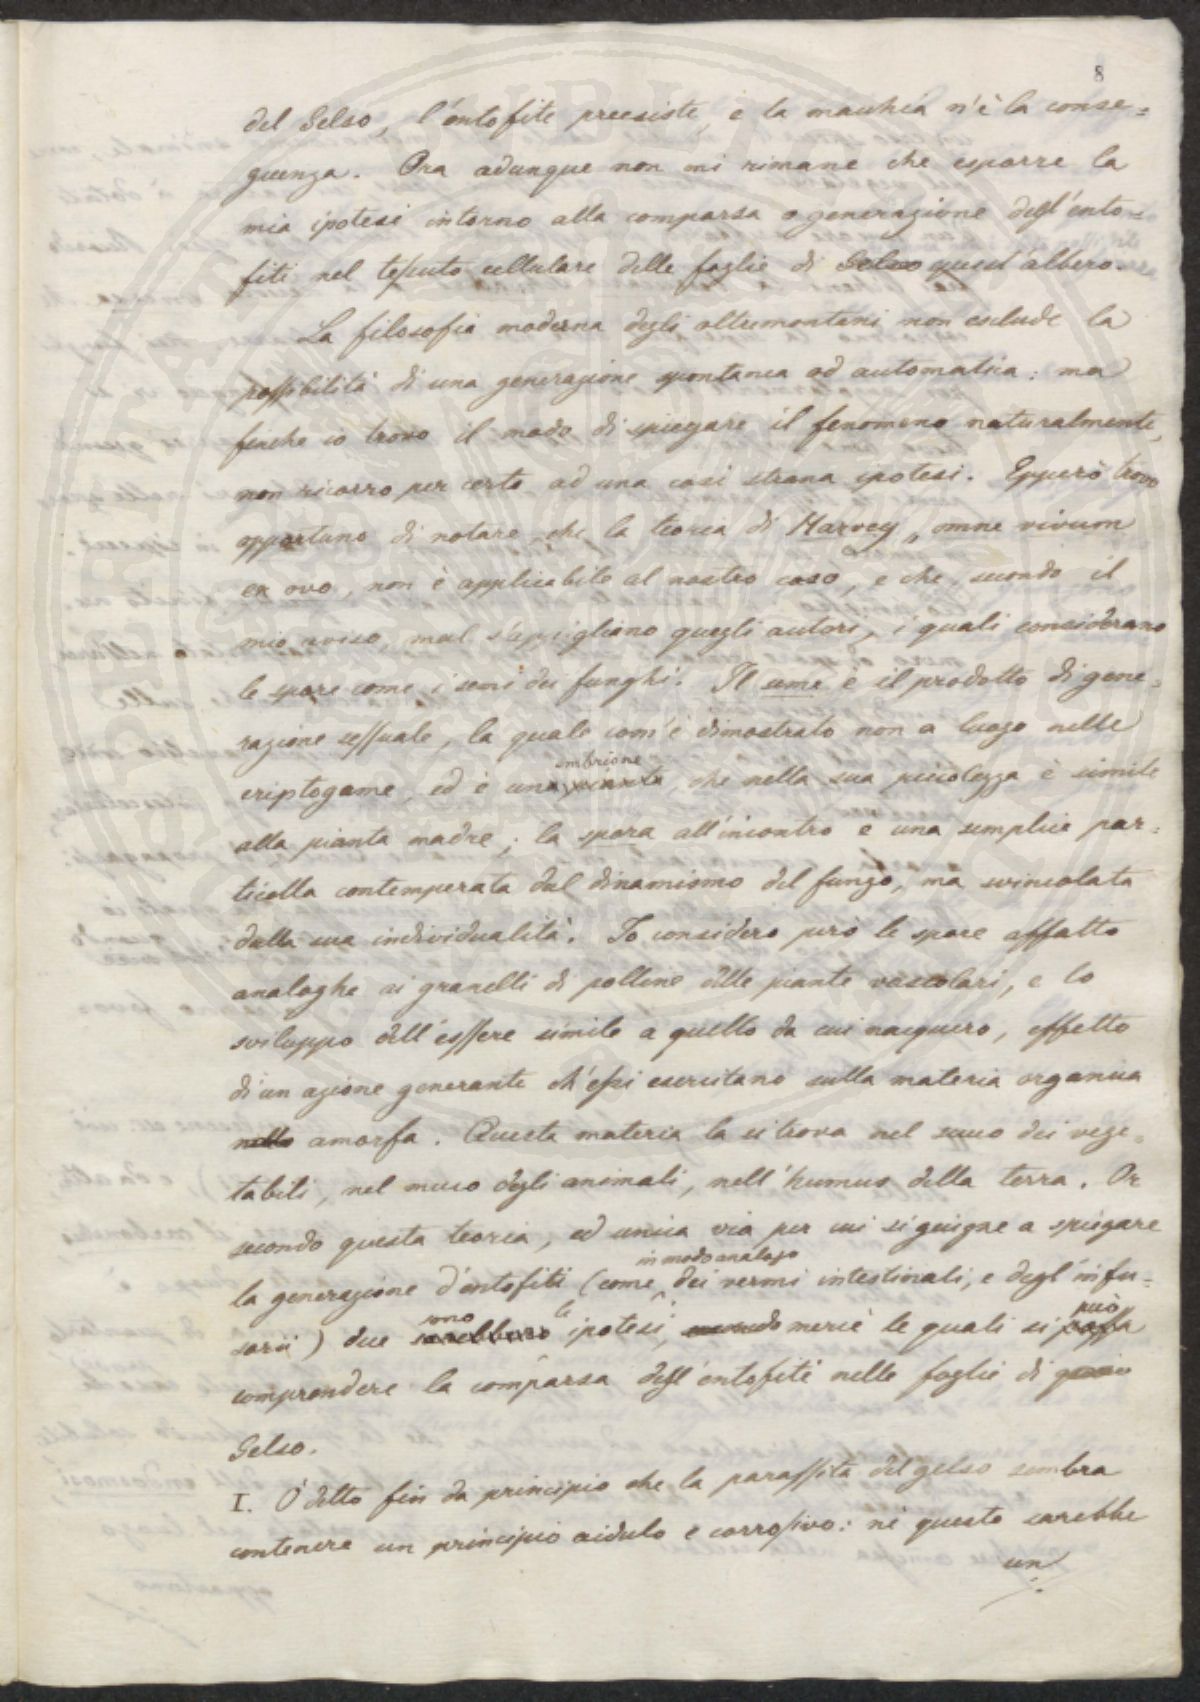 8
del Gelso, l'entofite preesiste, e la macchia n'è la conse=
guenza. Ora adunque non mi rimane che esporre la
mia ipotesi intorno alla comparsa o generazione degl'ento=
fiti nel tessuto cellulare delle foglie di Gelso quest'albero.
La filosofia moderna degli oltremontani non esclude la
possibilità di una generazione spontanea od automatica: ma
finche io trovo il modo di spiegare il fenomeno naturalmente,
non ricorro per certo ad una così strana ipotesi. Epperò trovo
opportuno di notare che la teoria di Harvey „omne vivum
ex ovo, non è applicabile al nostro caso, e che secondo il
mio aviso, mal s'appigliano quegli autori, i quali considerano
le spore come i semi dei funghi. Il seme è il prodotto di gene=
razione sessuale, la quale com'è dimostrato non a luogo nelle
embrione
criptogame, ed è una pianta, che nella sua picciolezza è simile
alla pianta madre; la spora all'incontro e una semplice par=
ticella contemperata dal dinamismo del fungo, ma svincolata
dalla sua individualità. Io considero però le spore affatto
analoghe ai granelli di polline delle piante vascolari, e lo
sviluppo dell'essere simile a quello da cui nacquero, effetto
di un azione generante ch'essi esercitano sulla materia organica
nello amorfa. Questa materia la si trova nel succo dei vege=
tabili, nel muco degli animali, nell'humus della terra. Or
secondo questa teoria, ed unica via per cui si giugne a spiegare
in modo analogo
la generazione d'entofiti (come dei vermi intestinali, e degl'infu=
sono le può
sorii) due sarebbero ipotesi, mercè le quali si possa
comprendere la comparsa degl'entofiti nelle foglie di
Gelso.
I. Ò detto fin da principio che la parassita del gelso sembra
contenere un principio acidulo e corrosivo: nè questo sarebbe
un